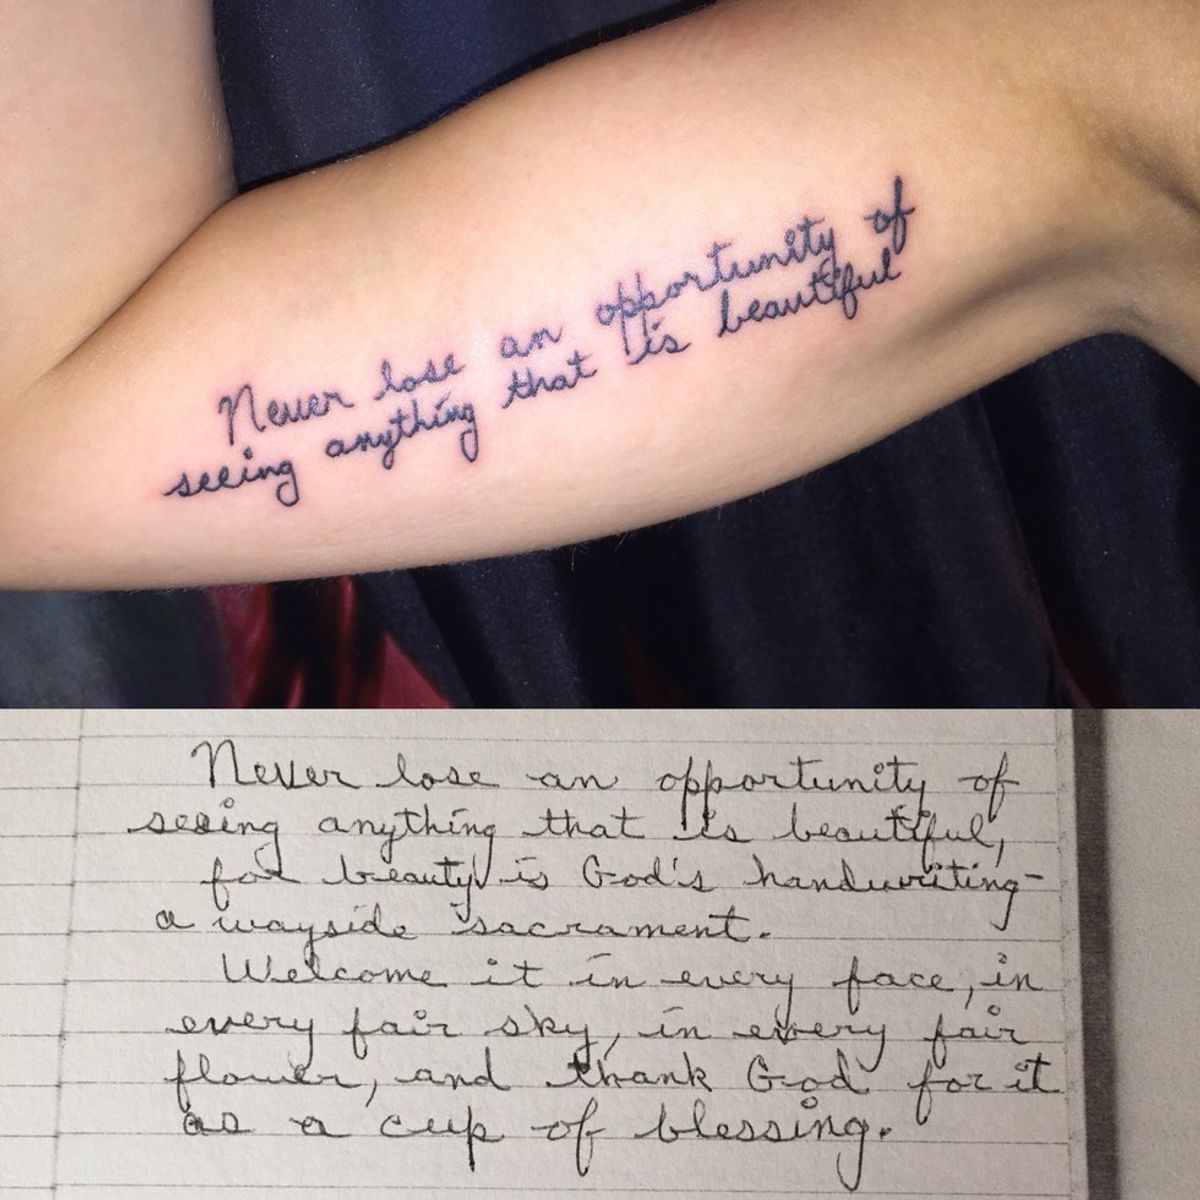 Never lose an opportunity of
seeing anything that is beautiful
Never lose an opportunity of
seeing anything that is beautiful,
for beauty is God's handwriting-
a wayside sacrament.
Welcome it in every face, in
every fair sky, in every fair
flower, and thank God for it
as a cup of blessing.